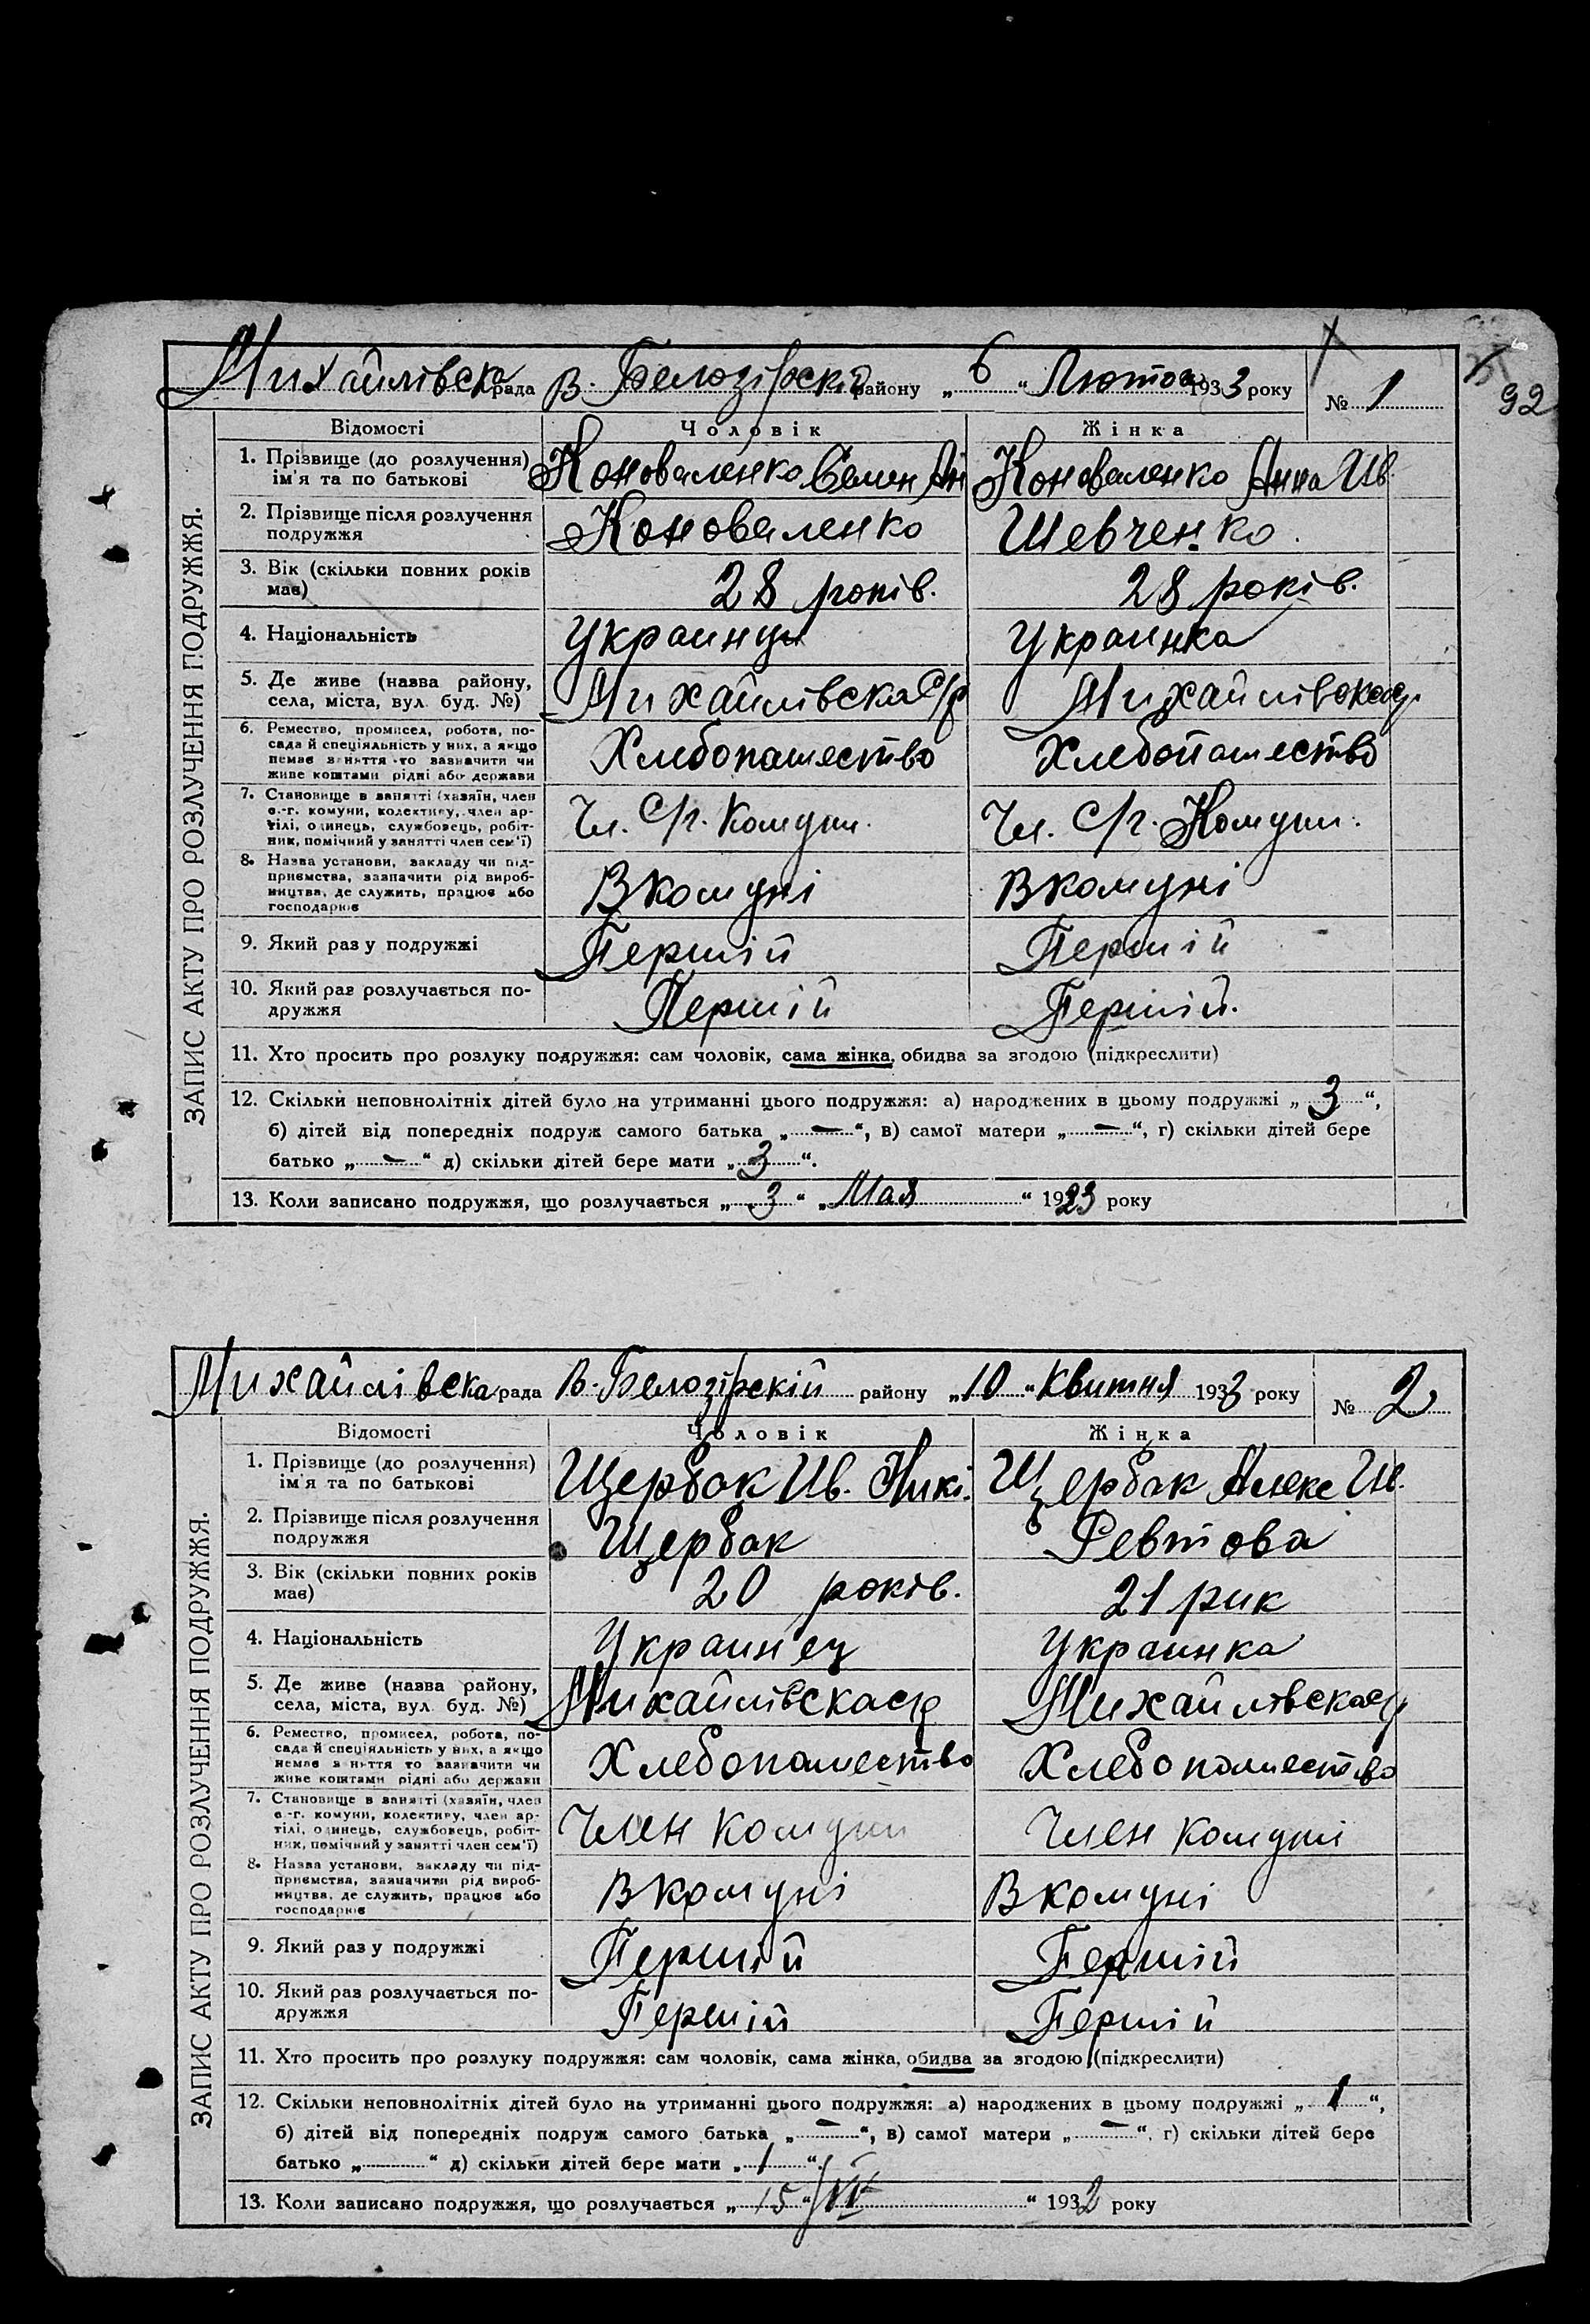 Михайлівска рада В. Белозірскій району „ 6 “ Лютоа 1933 року № 1
92
ЗАПИС АКТУ ПРО РОЗЛУЧЕННЯ ПОДРУЖЖЯ.
Відомості Чоловік Жінка
1. Прізвище (до розлучення) ім'я та по батькові Коноваленко Семен Ан Коноваленко Анна Ив.
2. Прізвище після розлучення подружжя Коноваленко Шевченко.
3. Вік (скільки повних років має) 28 років. 28 років.
4. Національність Украинец Украинка
5. Де живе (назва району, села, міста, вул. буд. №) Михайлівска с/р Михайлівска ср.
6. Ремество, промисел, робота, посада й спеціяльність у них, а якщо немає заняття то зазначити чи живе коштами рідні або держави Хлебопашество Хлебопашество
7. Становище в занятті (хазяїн, член с.-г. комуни, колективу, член артілі, одинець, службовець, робітник, помічний у занятті член сем'ї) Чл. С/г. Комуни. Чл. С/г. Комуни.
8. Назва установи, закладу чи підприємства, зазначити рід виробництва, де служить, працює або господарює В комуні В комуні
9. Який раз у подружжі Першій Першій
10. Який раз розлучається подружжя Першій Першій.
11. Хто просить про розлуку подружжя: сам чоловік, сама жінка, обидва за згодою (підкреслити)
12. Скільки неповнолітніх дітей було на утриманні цього подружжя: а) народжених в цьому подружжі „ 3 “,
б) дітей від попередніх подруж самого батька „ — “, в) самої матери „ — “, г) скільки дітей бере
батько „ — “ д) скільки дітей бере мати „ 3 “.
13. Коли записано подружжя, що розлучається „ 3 “ „ Мая “ 1923 року
Михайлівска рада В. Белозірскій району „ 10 “ Квитня 1933 року № 2
ЗАПИС АКТУ ПРО РОЗЛУЧЕННЯ ПОДРУЖЖЯ.
Відомості Чоловік Жінка
1. Прізвище (до розлучення) ім'я та по батькові Щербак Ив. Никі. Щербак Алекс Ив.
2. Прізвище після розлучення подружжя Щербак Ревтова
3. Вік (скільки повних років має) 20 років. 21 рик
4. Національність Украинец Украинка
5. Де живе (назва району, села, міста, вул. буд. №) Михайлівска ср Михайлівска ср
6. Ремество, промисел, робота, посада й спеціяльність у них, а якщо немає заняття то зазначити чи живе коштами рідні або держави Хлебопашество Хлебопашество
7. Становище в занятті (хазяїн, член с.-г. комуни, колективу, член артілі, одинець, службовець, робітник, помічний у занятті член сем'ї) Член комуни Член комуні
8. Назва установи, закладу чи підприємства, зазначити рід виробництва, де служить, працює або господарює В комуні В комуні
9. Який раз у подружжі Першій Першій
10. Який раз розлучається подружжя Першій Першій
11. Хто просить про розлуку подружжя: сам чоловік, сама жінка, обидва за згодою (підкреслити)
12. Скільки неповнолітніх дітей було на утриманні цього подружжя: а) народжених в цьому подружжі „ 1 “,
б) дітей від попередніх подруж самого батька „ — “, в) самої матери „ — “, г) скільки дітей бере
батько „ “ д) скільки дітей бере мати „ 1 “.
13. Коли записано подружжя, що розлучається „ 15 “ / “ 1932 року